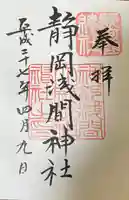 奉拝
静岡浅間神社
平成二十七年四月九日